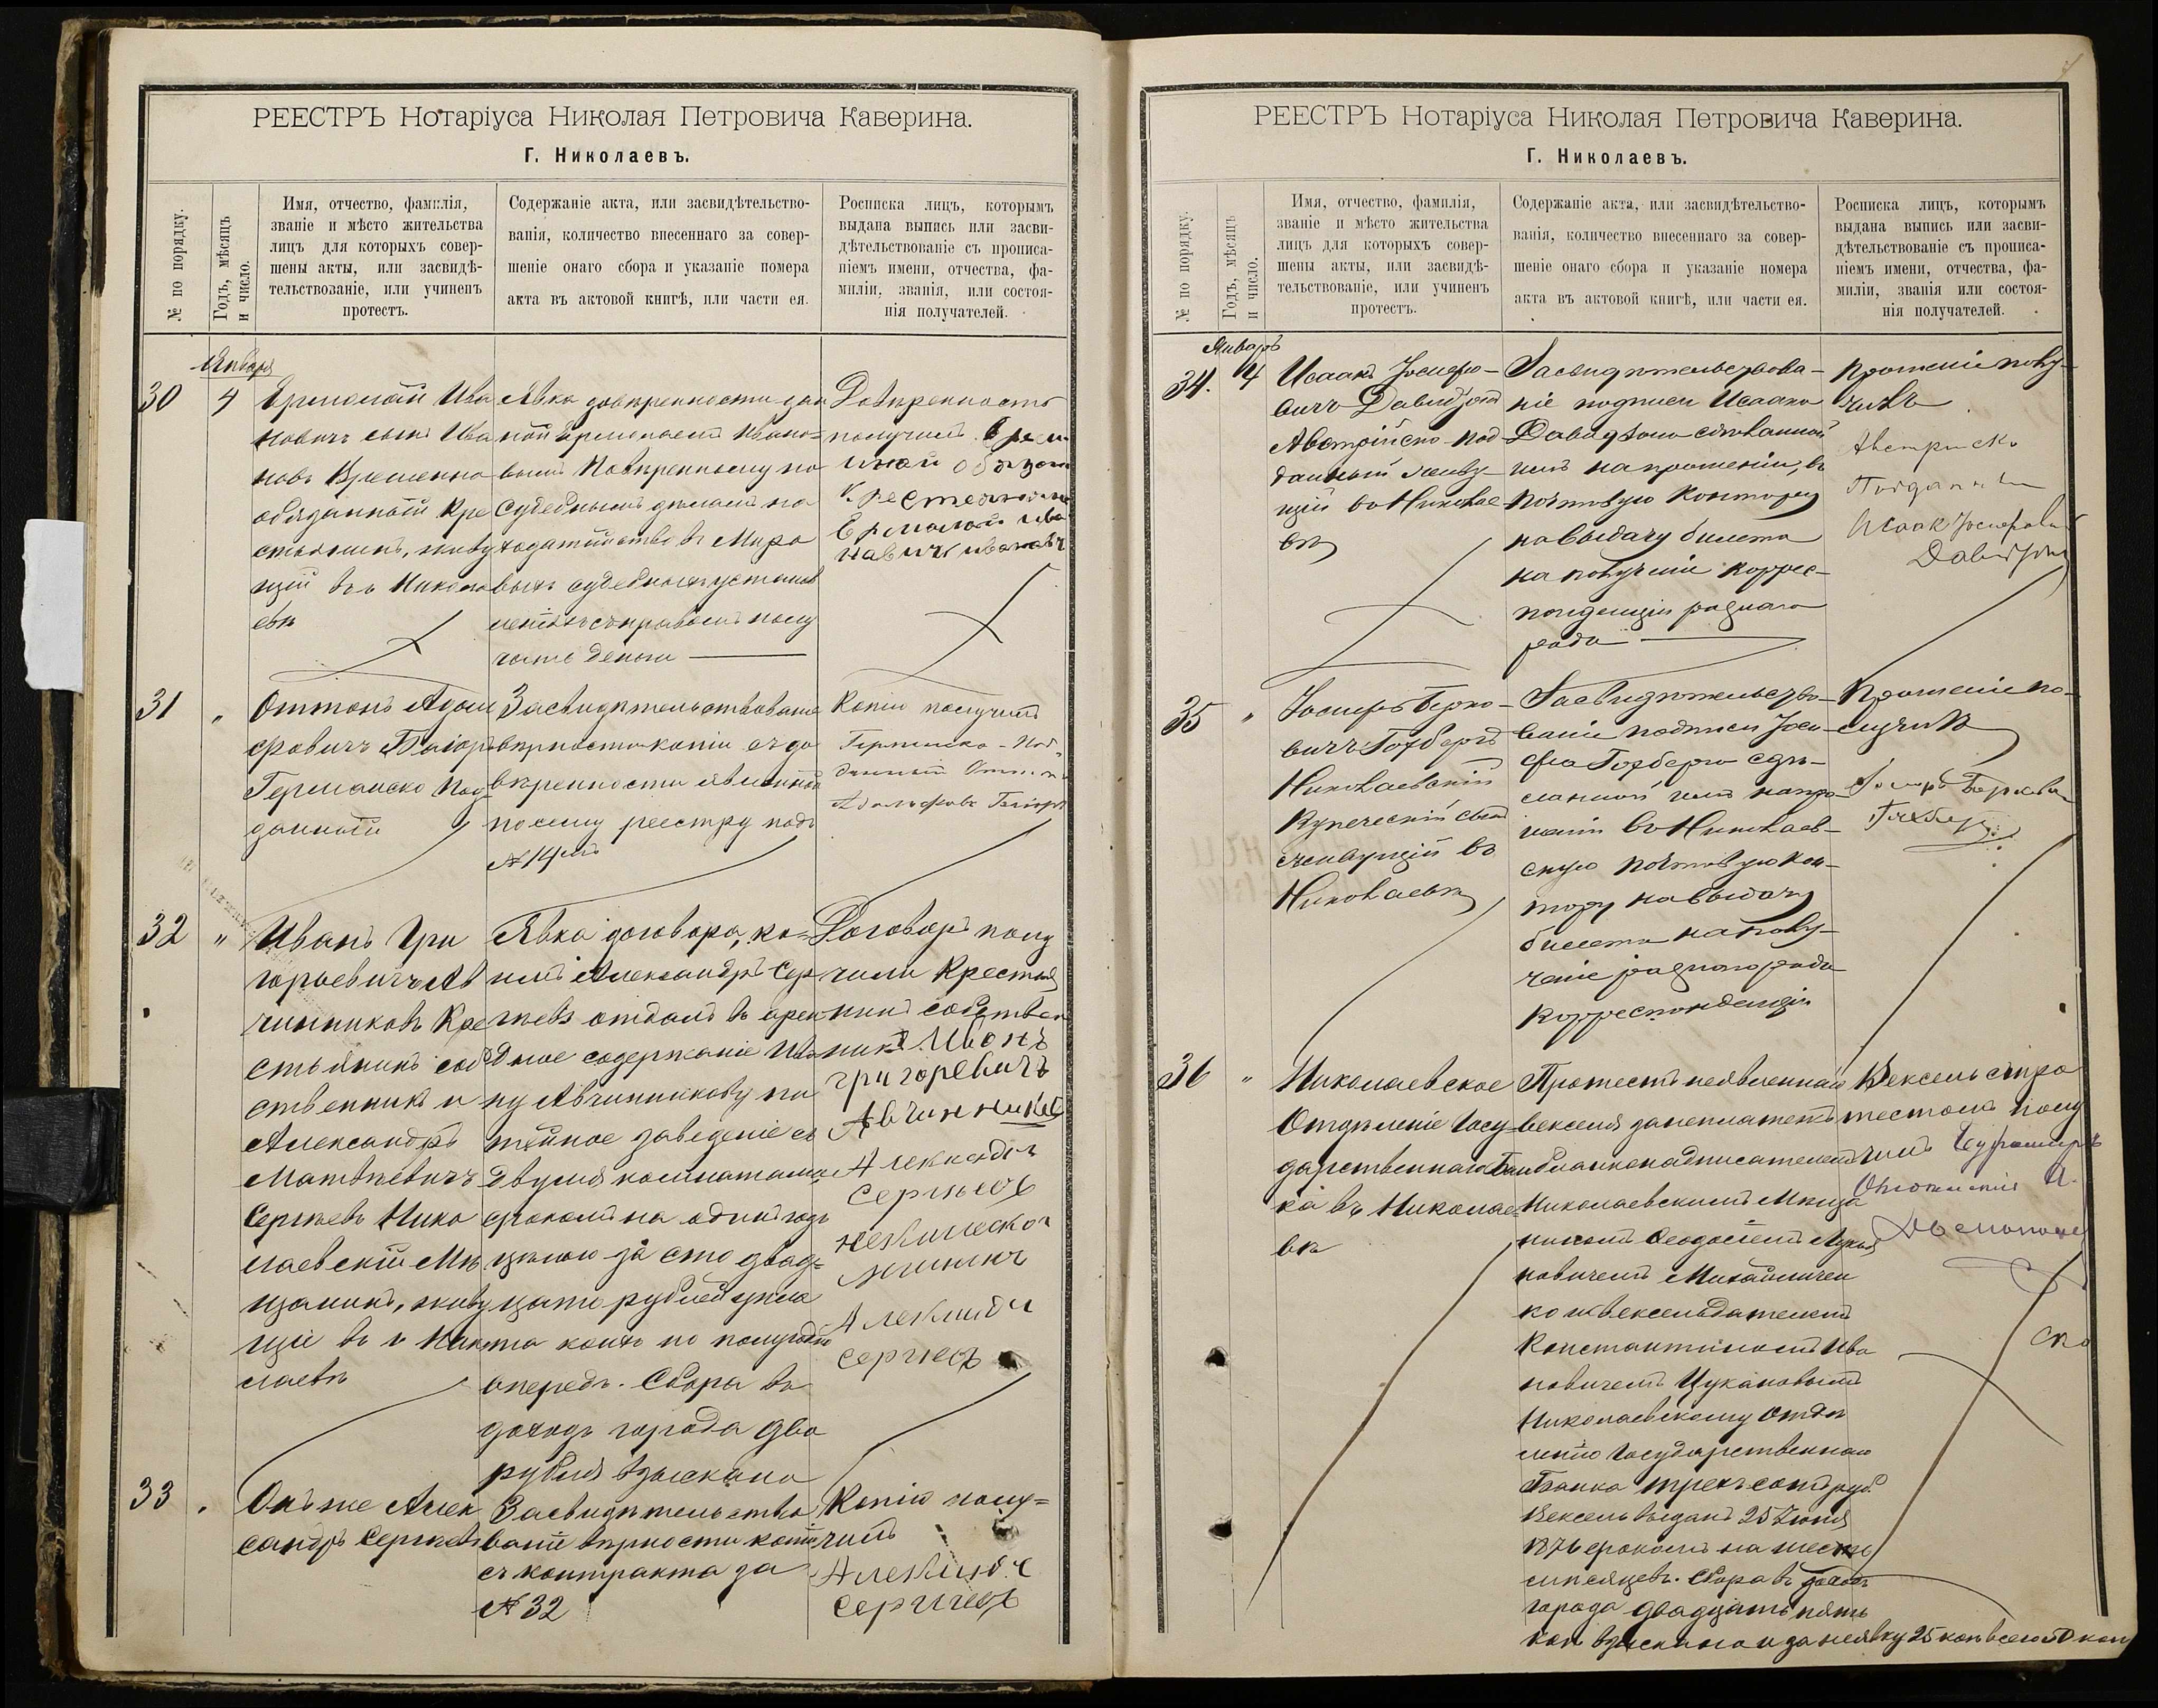 РЕЕСТРЪ Нотаріуса Николая Петровича Каверина.
Г. Николаевъ.
№ по порядку.
Годъ, мѣсяцъ
и число.
Имя, отчество, фамилія,
званіе и мѣсто жительства
лицъ для которыхъ совер-
шены акты, или засвидѣ-
тельствованіе, или учиненъ
протестъ.
Содержаніе акта, или засвидѣтельство-
ванія, количество внесеннаго за совер-
шеніе онаго сбора и указаніе номера
акта въ актовой книгѣ, или части ея.
Росписка лицъ, которымъ
выдана выпись или засви-
дѣтельствованіе съ прописа-
ніемъ имени, отчества, фа-
миліи, званія, или состоя-
нія получателей.
Января
30
4
Ермолай Ива
новичъ сынъ Ива
новъ Временно
обязанный Кре
стьянинъ, живу
щій въ г. Никола
евѣ
Явка довѣренности дан
ной Ермолаемъ Ивано=
вымъ Повѣренному по
Судебнымъ дѣламъ на
ходатайство въ Миро
выхъ судебныхъ установ
леніяхъ съ правомъ полу
чать деньги
Довѣренность
получилъ Врем
иной обязан
Крестьянин
Ермолай Ива
навичъ Ивановъ
31
"
Оттонъ Адоль
фовичъ Баіоръ
Германско Под-
данный
Засвидѣтельствованіе
вѣрности копіи съ до
вѣренности явленной
по сему реестру подъ
№ 14мъ
Копію получилъ
Германско-Под-
данный Оттон
Адольфовъ Баіоръ
32
"
Иванъ Гри
горьевичъ Ав
чинниковъ Кре
стьянинъ соб
ственникъ и
Александръ
Матвѣевичъ
Сергѣевъ Нико
лаевскій Мѣ
щанинъ, живу
щіе въ г. Нико
лаевѣ
Явка договора, ко=
имъ Александръ Сер
гѣевъ отдалъ въ арен
дное содержаніе Ива
ну Авчинникову пи
тейное заведеніе съ
двумя комнатами
срокомъ на одинъ годъ
цѣною за сто двад=
цать рублей упла
та коихъ по полугодно
впередъ. Сбора въ
доходъ города два
рубля взыскано
Договоръ полу
чили Крестья
нинъ собствен
никъ Иванъ
григоревичъ
Авчинников
Сергѣевъ
Сергѣевъ
33
"
Онъ же Алек
сандръ Сергѣевъ
Засвидѣтельство
ваніе вѣрности копіи
съ контракта за
№ 32
Копію полу=
чилъ
Сергѣевъ
РЕЕСТРЪ Нотаріуса Николая Петровича Каверина.
Г. Николаевъ.
№ по порядку.
Годъ, мѣсяцъ
и число.
Имя, отчество, фамилія,
званіе и мѣсто жительства
лицъ для которыхъ совер-
шены акты, или засвидѣ-
тельствованіе, или учиненъ
протестъ.
Содержаніе акта, или засвидѣтельство-
ванія, количество внесеннаго за совер-
шеніе онаго сбора и указаніе номера
акта въ актовой книгѣ, или части ея.
Росписка лицъ, которымъ
выдана выпись или засви-
дѣтельствованіе съ прописа-
ніемъ имени, отчества, фа-
миліи, званія или состоя-
нія получателей.
Январь
34.
4
Исаакъ Іосифо-
вичъ Давидзонъ
Австрійско-под
данный живу
щій въ Николае
вѣ
Засвидѣтельствова-
ніе подписи Исаака
Давидзона сдѣланной
имъ на прошеніи, въ
почтовую контору
на выдачу билета
на полученіе коррес-
понденціи разнаго
рода
Прошеніе полу-
чилъ
Австриско
Подданны
Исаак Іосифович
Давидзон
35
"
Іосифъ Берко-
вичъ Готбергъ
Николаевскій
Купеческій сынъ
живущій въ
Николаевѣ
Засвидѣтельство-
ваніе подписи Іоси-
фа Готберга сдѣ-
ланной имъ на про-
шеніи въ Николаев-
скую почтовую кон-
тору на выдачу
билета на полу-
ченіе разнаго рода
корреспонденціи
Прошеніе по-
лучилъ
36
"
Николаевское
Отдѣленіе Госу
дарственнаго Бан
ка въ Николае=
вѣ
Протестъ неявленнаго
векселя за неплатежъ
бланконадписателемъ
Николаевскимъ Мѣща
ниномъ Феодосіемъ Лукья
новичемъ Михайличен
ко и векселедателемъ
Константиномъ Ива
новичемъ Цукановымъ
Николаевскому Отдѣ
ленію Государственнаго
Банка трехъ сотъ руб.
Вексель выданъ 25 Іюня
1876 срокомъ на шесть
мѣсяцевъ. Сбора въ доходъ
города двадцать пять
коп взыскано и за неявку 25 коп всего 50 коп
Вексель съ про
тестомъ полу
чилъ